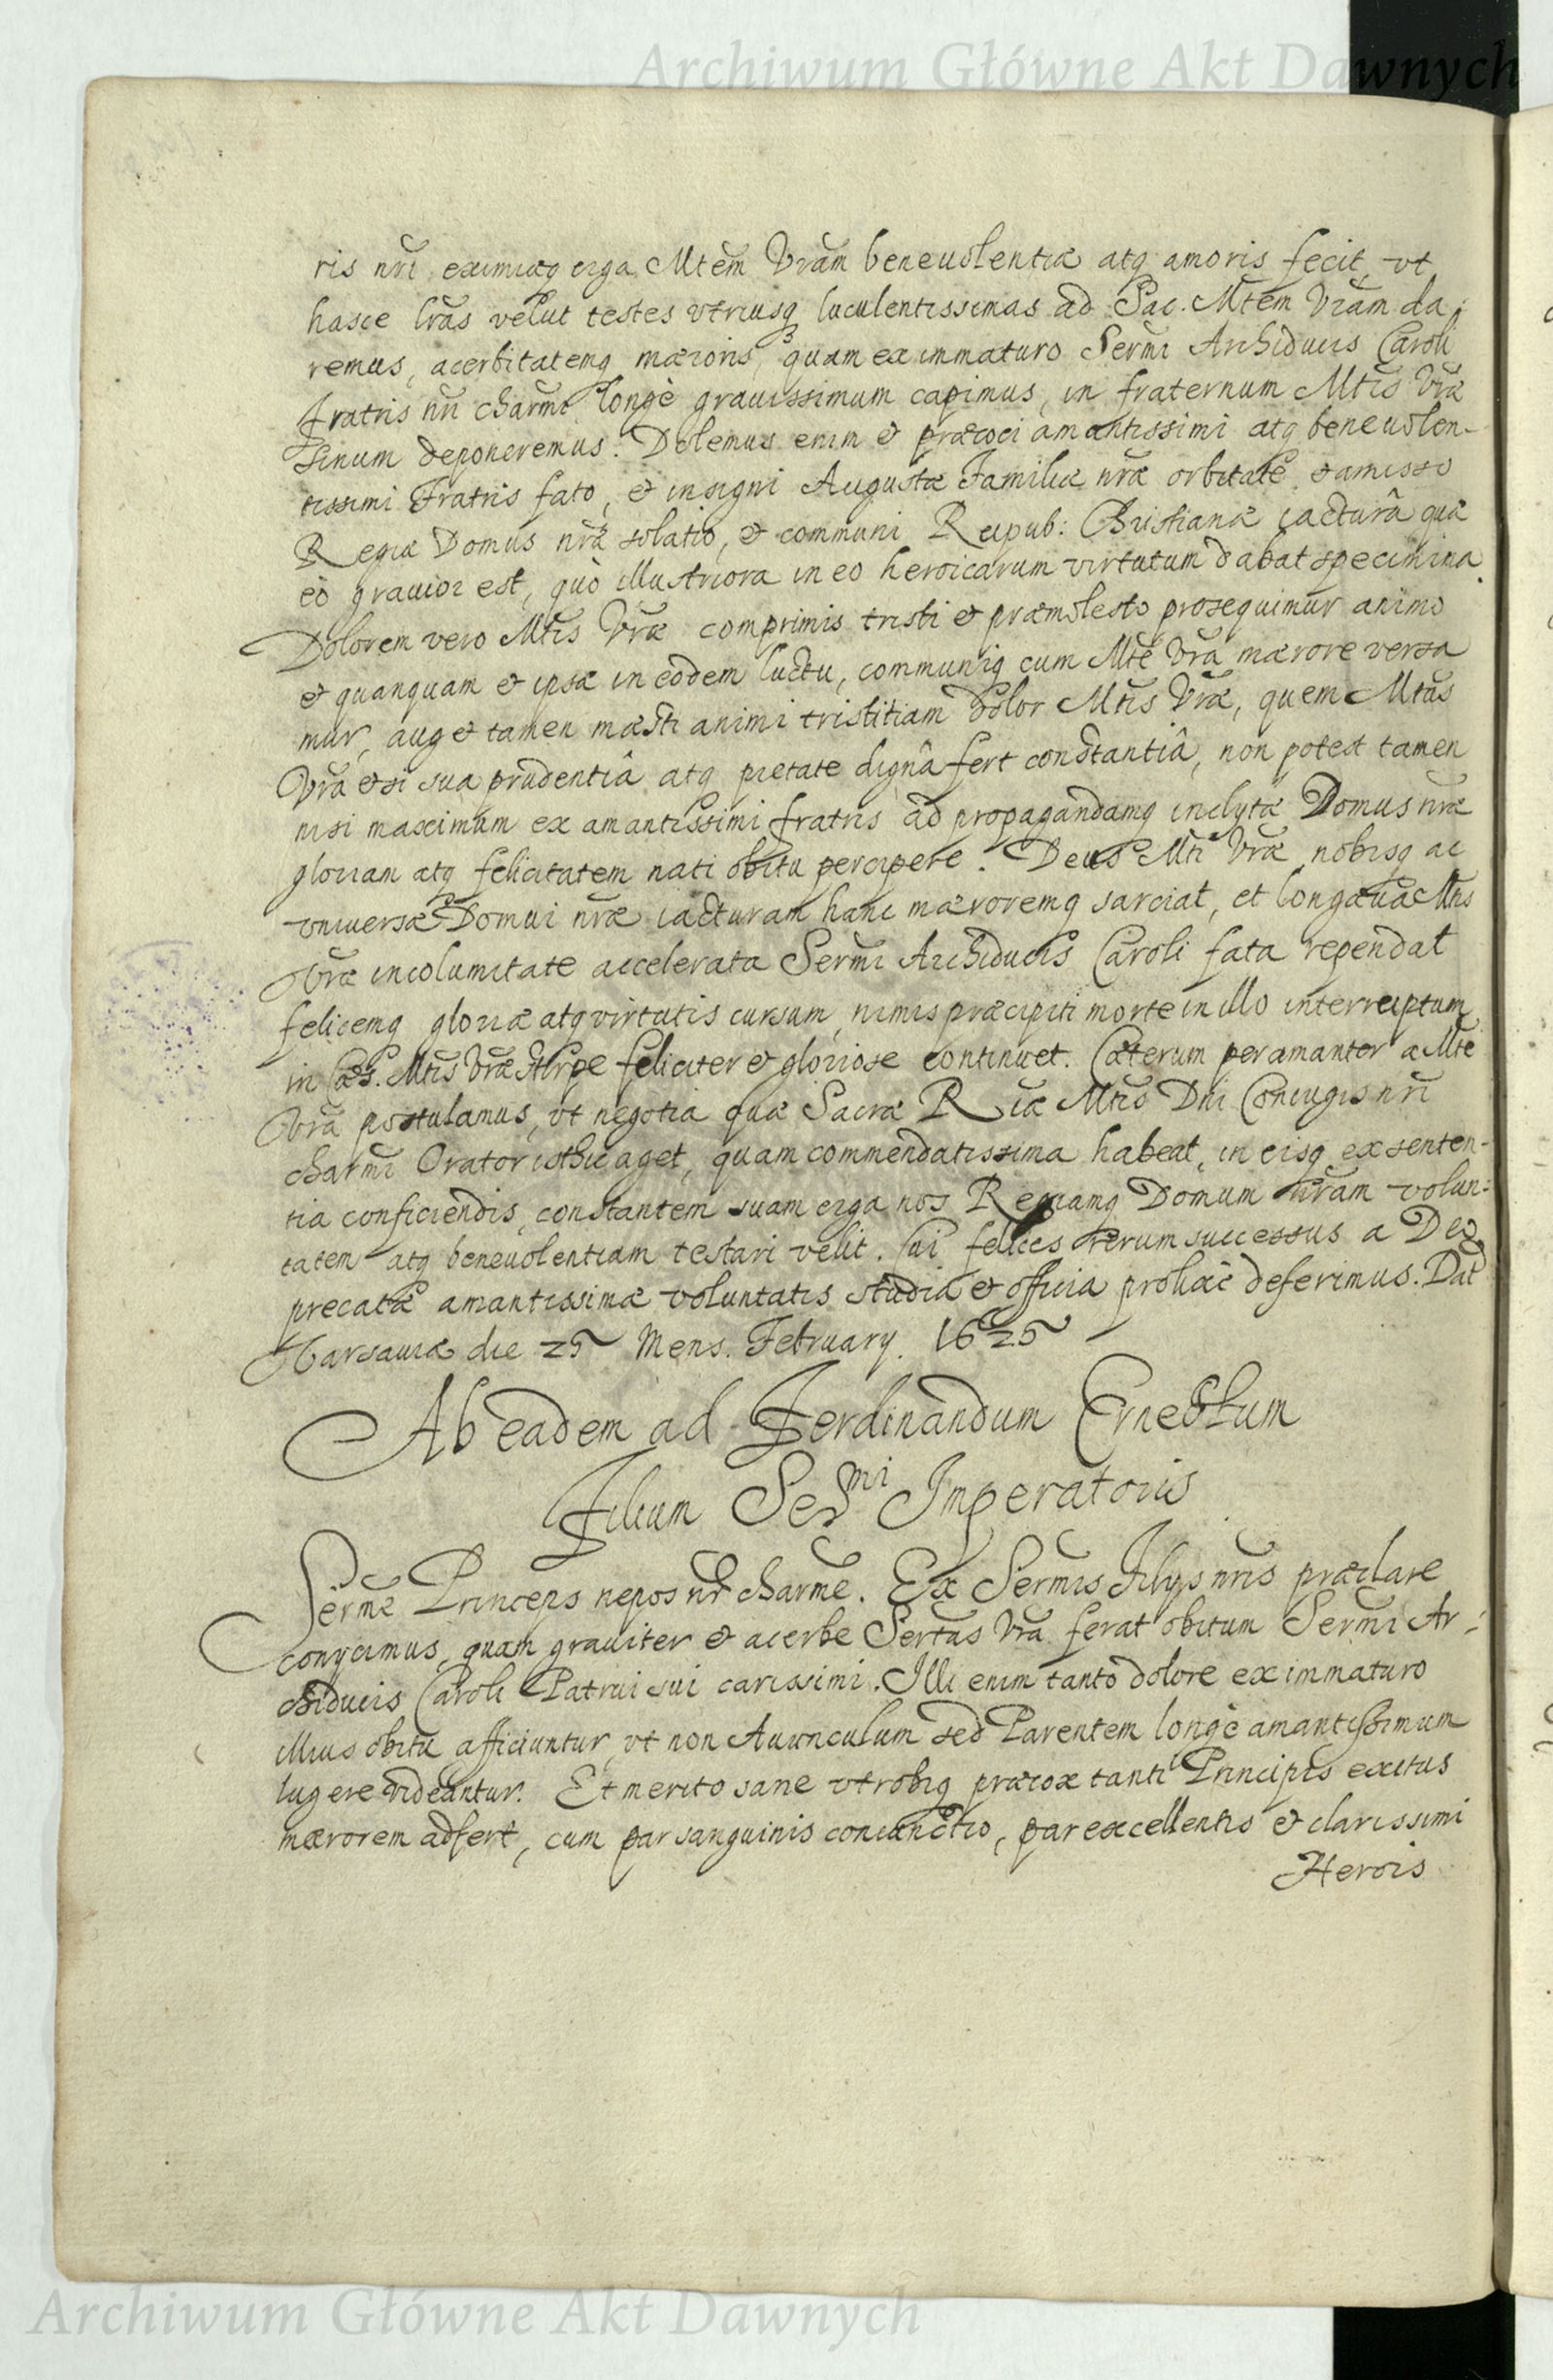 Archiwum Główne Akt Dawnych
ris nr̃i eximiæq erga Mtem Vram beneuolentiæ atq amoris fecit, vt
hasce lr̃as velut testes vtriusq luculentissimas ad Sac. Mtem Vram da,
remus, acerbitatemq mæroris, quam ex immaturo Sermi Archiducis Caroli
Fratris nr̃i charmi longè grauissimum capimus, in fraternum Mtis Vræ
sinum deponeremus. Dolemus enim & præcoci amantissimi atq beneuolen-
tissimi Fratris fato, & insigni Augustæ Familiæ nr̃æ orbitate, & amisso
Regiæ Domus nr̃æ solatio, & communi Reipub: Christianæ iacturâ quæ
eò grauior est, quò illustriora in eo heroicarum virtutum dabat specimina.
Dolorem vero Mtis Vræ comprimis tristi & præmolesto prosequimur animo
& quanquam & ipsæ in eodem luctu, communiq cum Mte Vra mærore versa
mur, auget tamen mæsti animi tristitiam dolor Mtis Vræ, quem Mtas
Vra etsi sua prudentiâ atq pietate dignâ fert constantiâ, non potest tamen
nisi maximum ex amantissimi fratris ad propagandamq inclytæ Domus nr̃æ
gloriam atq felicitatem nati obitu percipere. Deus Mti Vræ, nobisq ac
vniuersæ Domui nr̃æ iacturam hanc mæroremq sarciat, et longæua Mtis
Vræ incolumitate accelerata Sermi Archiducis Caroli fata rependat
felicemq gloriæ atq virtutis cursum, nimis præcipiti morte in illo interruptum,
in Cæs. Mtis Vræ stirpe feliciter & gloriose continuet. Cæterum peramanter a Mte
Vra postulamus, vt negotia quæ Sacræ Riæ Mtis Dni Coniugis nr̃i
charmi Orator isthic aget, quam commendatissima habeat, in eisq ex senten-
tia conficiendis, constantem suam erga nos Regiamq Domum nr̃am volun-
tatem atq beneuolentiam testari velit. Cui felices rerum successus a Deo
precatæ amantissimæ voluntatis studia & officia prolixè deferimus. Dat
Varsauiæ die 25 Mens. February. 1625
Ab eadem ad Ferdinandum Ernestum
Filium Sermi Imperatoris
Serme Princeps nepos nr̃ charme. Ex Sermis Filijs nr̃is præclare
conycimus, quam grauiter & acerbe Sertas Vra ferat obitum Sermi Ar-
chiducis Caroli Patrui sui carissimi. Illi enim tanto dolore ex immaturo
illius obitu afficiuntur, vt non Auunculum sed Parentem longè amantissimum
lugere videantur. Et merito sane vtrobiq præcox tanti Principis exitus
mærorem adfert, cum par sanguinis coniunctio, par excellentis & clarissimi
Herois
Archiwum Główne Akt Dawnych